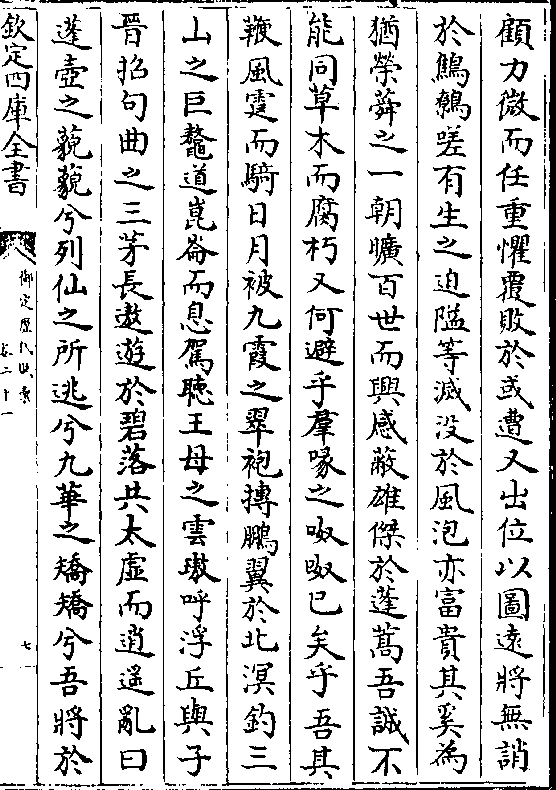 顧力微而任重懼覆敗於或遭又出位以圖遠將無誚
於鷦鷯嗟有生之迫隘等滅没於風泡亦富貴其奚為
猶榮蕣之一朝曠百世而興感蔽雄傑於蓬蒿吾誠不
能同草木而腐朽又何避乎羣喙之呶呶已矣乎吾其
鞭風霆而騎日月被九霞之翠袍摶鵬翼於北溟釣三
山之巨鰲道崑崙而息駕聽王母之雲璈呼浮丘與子
晉招句曲之三茅長遨遊於碧落共太虛而逍遥亂曰
蓬壺之藐藐兮列仙之所逃兮九華之矯矯兮吾將於
欽定四庫全書
御定歷代賦彙
卷二十一
七